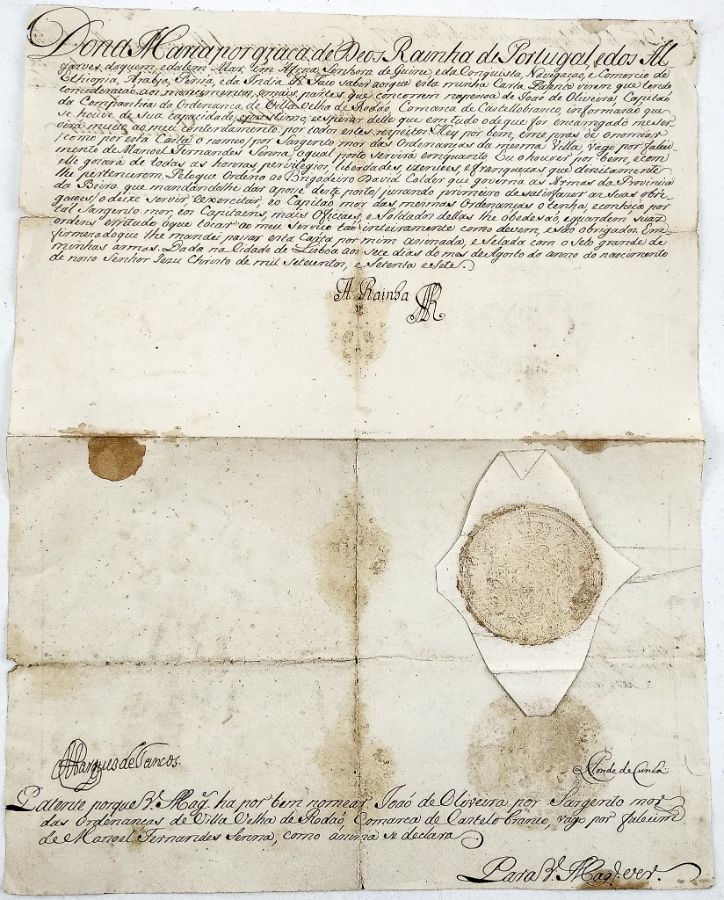 Dona Maria por graça de Deos Rainha de Portugal, e dos Al
garves, daquem, e dalem Mar, em Africa Senhora de Guiné, e da Conquista, Navegaçaõ, e Comercio de
Ethiopia, Arabia, Persia, e da India &. Faço saber aos que esta minha Carta Patente virem que tendo
consideração aos merecimentos, e mais partes que concorrem na pessoa de Joaõ de Oliveira Capitaõ
da Companhia da Ordenança de Villa Velha de Rodaõ, Comarca de Castellobranco, informarão que
se houve de sua capacidade, e prestimo, e esperar delle que em tudo o de que for encarregado me ser
virá muito ao meu contentamento por todos estes respeitos: Hey por bem, e me praz de o nomear
(como por esta Carta o nomeo) por Sargento mor das Ordenanças da mesma Villa, vago por faleci
mento de Manoel Fernandes Serena, o qual posto servirá emquanto Eu o houver por bem, e com
elle gozará de todas as honras, privilegios, liberdades, izençoes, e franquezas que direitamente
lhe pertencerem. Pelo que Ordeno ao Brigadeiro David Calder que governa as Armas da Provincia
da Beira, que mandandolhe dar a posse deste posto, jurando primeiro de satisfazer as suas obri
gaçoes; o deixe servir, e exercitar, e o Capitaõ mor das mesmas Ordenanças o tenha, conheça por
tal Sargento mor, e os Capitaens, mais Officiaes, e Soldados dellas lhe obedeçaõ, e guardem suas
ordens em tudo o que tocar ao meu Serviço taõ inteiramente como devem, e saõ obrigados. Em
firmeza do que lhe mandei passar esta Carta por mim assinada, e selada com o Selo grande de
minhas armas. Dada na Cidade de Lisboa aos sete dias do mes de Agosto do anno do nascimento
de nosso Senhor Jezu Christo de mil setecentos, e setenta e sete.
A Rainha
Marques de Tancos.
Conde de Cunha
Patente porque V. Mag.e ha por bem nomear Joaõ de Oliveira por Sargento mor
das Ordenanças de Villa Velha de Rodaõ Comarca de Castelo branco, vago por falecim.
de Manoel Fernandes Serena, como asima se declara
Para V. Mag.e ver.